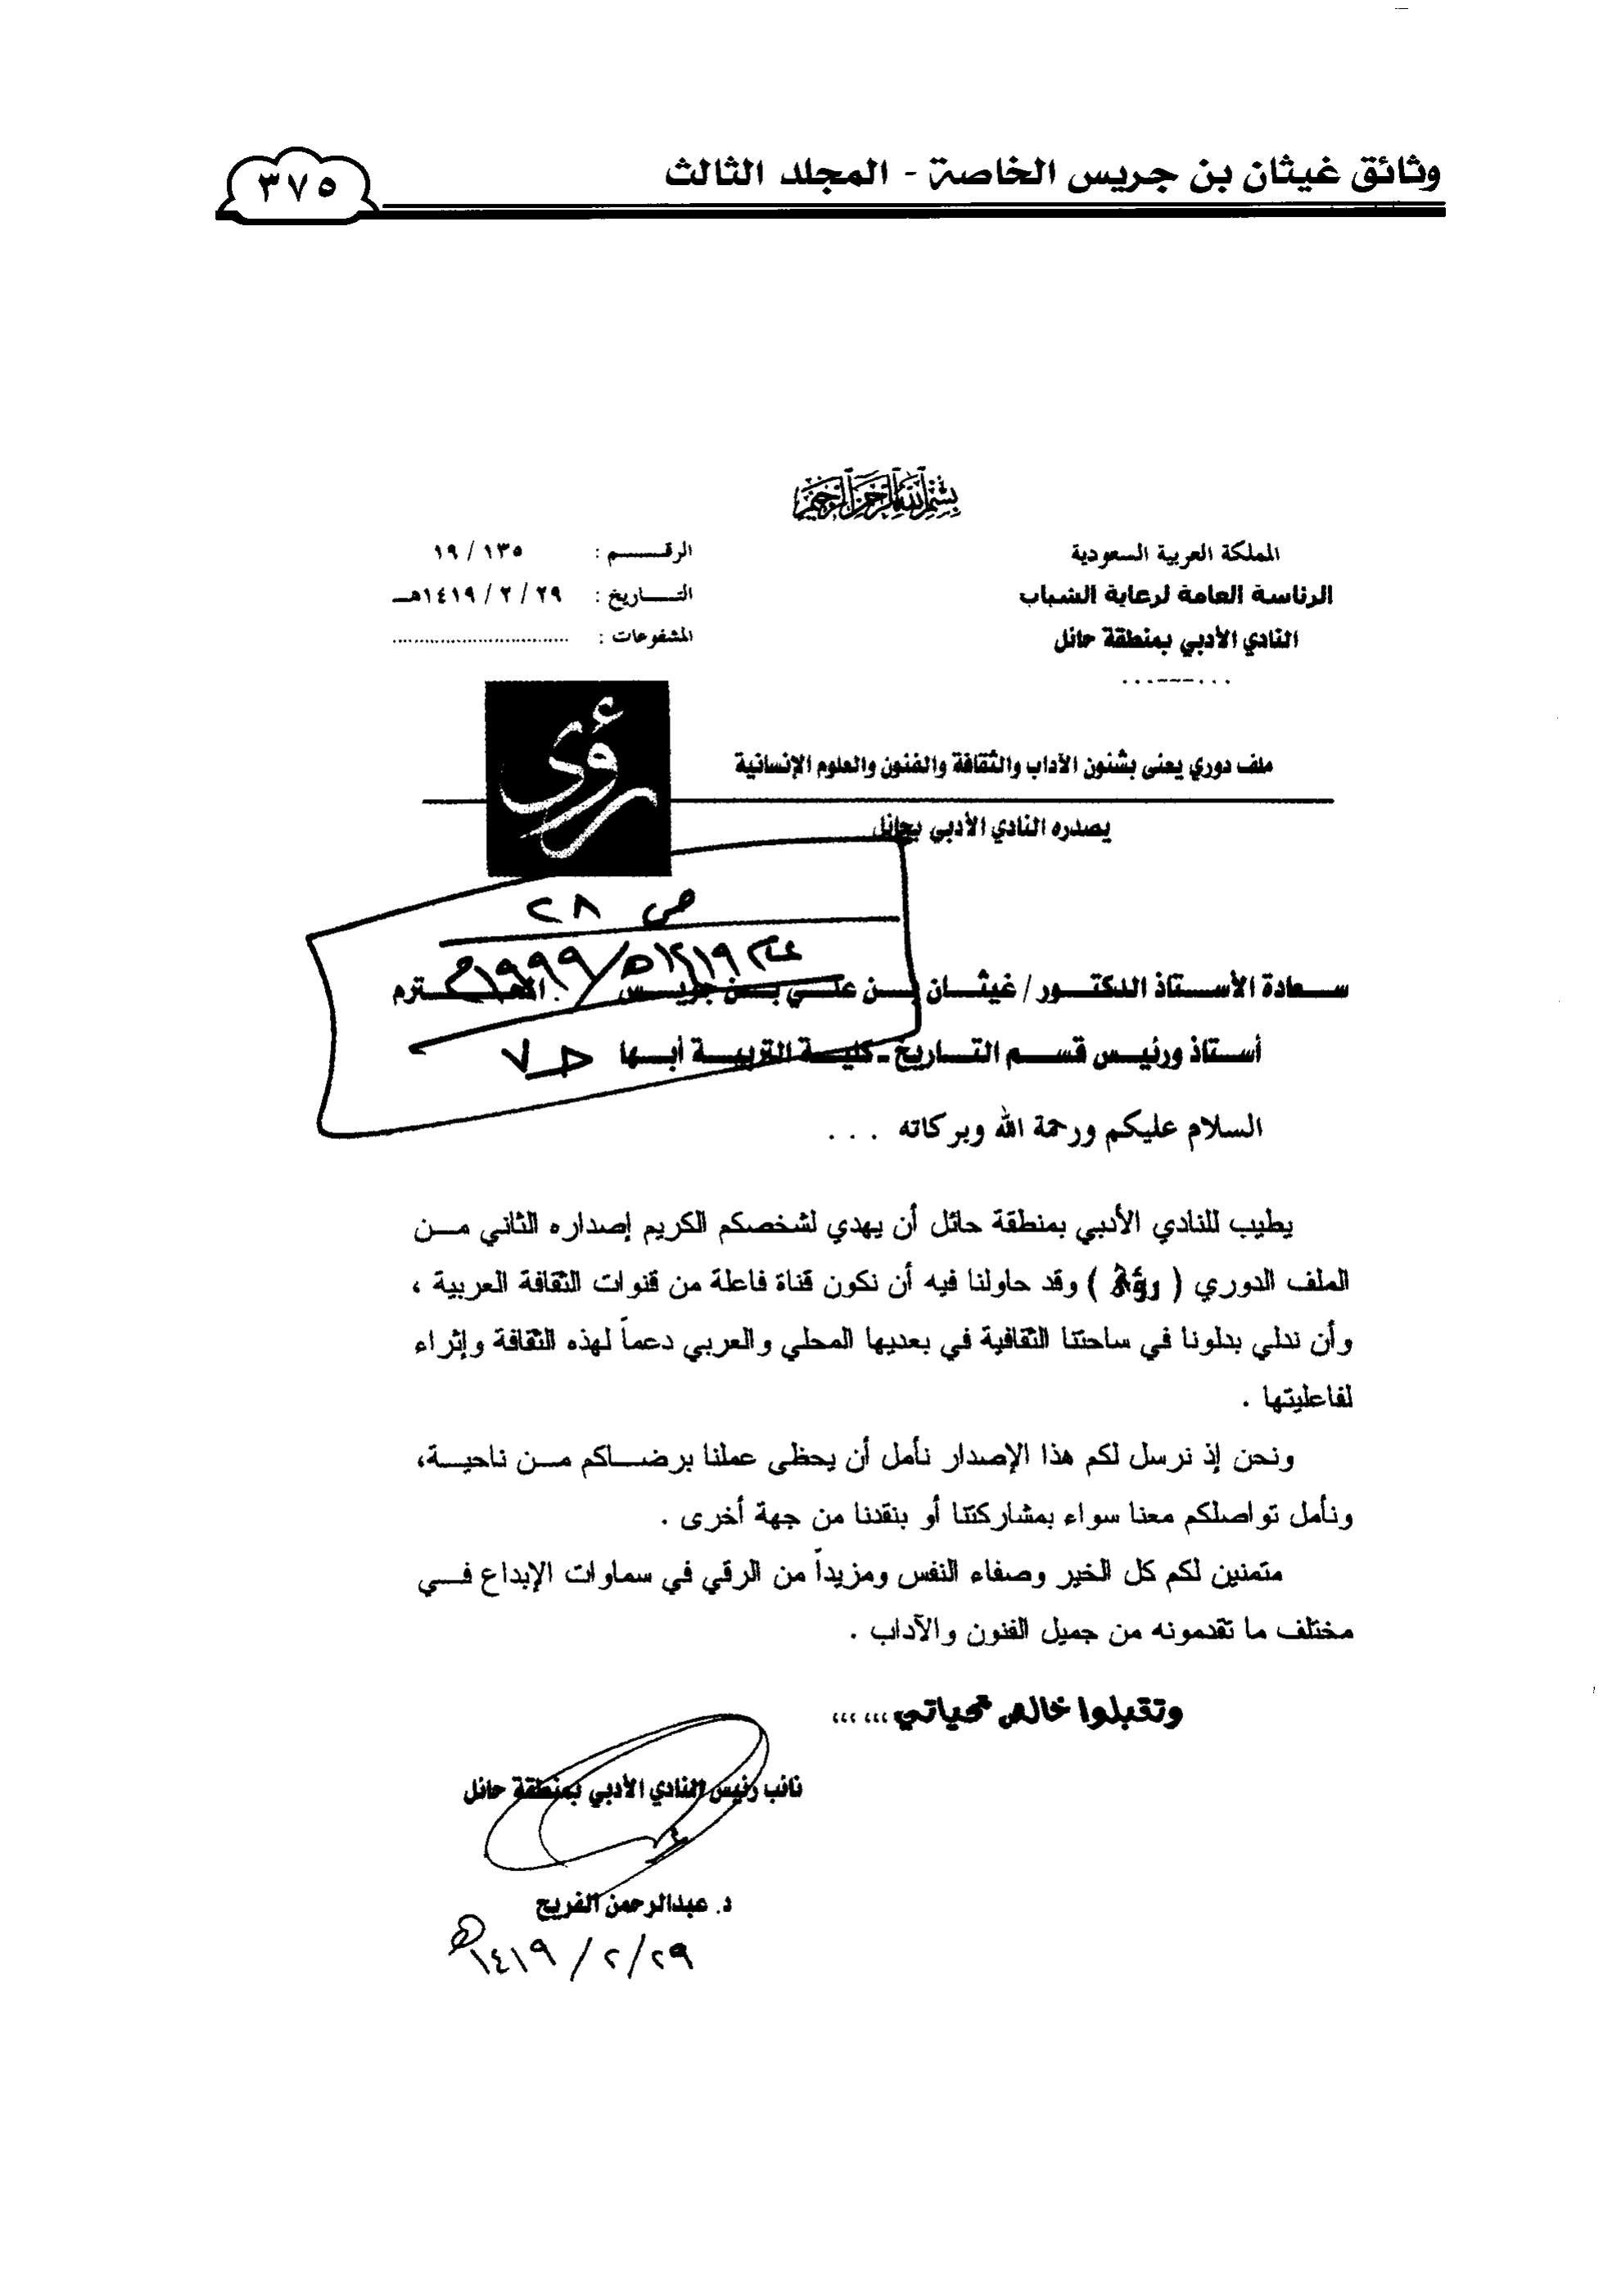 وثائق غيثان بن جريس الخاصة - المجلد الثالث
٣٧٥
بسم الله الرحمن الرحيم
المملكة العربية السعودية
الرئاسة العامة لرعاية الشباب
النادي الأدبي بمنطقة حائل
الرقــــــم : ١٣٥ / ١٩
التـــــاريخ : ٢٩ / ٢ / ١٤١٩هـــ
المشفوعات : ..............................
رؤى
ملف دوري يعنى بشئون الآداب والثقافة والفنون والعلوم الإنسانية
يصدره النادي الأدبي بحائل
ص ٢٨
١٤١٩هـ / ١٩٩٩م
ســـعادة الأســـتاذ الدكتـــور/ غيثـــان بـــن علـــي بـــن جريـــس المحـــترم
أســـتاذ ورئيـــس قســـم التـــاريخ ـ كليـــة التربيـــة أبـــها
السلام عليكم ورحمة الله وبركاته . . .
يطيب للنادي الأدبي بمنطقة حائل أن يهدي لشخصكم الكريم إصداره الثاني مـــن
الملف الدوري ( رؤى ) وقد حاولنا فيه أن نكون قناة فاعلة من قنوات الثقافة العربية ،
وأن ندلي بدلونا في ساحتنا الثقافية في بعديها المحلي والعربي دعماً لهذه الثقافة وإثراء
لفاعليتها .
ونحن إذ نرسل لكم هذا الإصدار نأمل أن يحظى عملنا برضـــاكم مـــن ناحيـــة،
ونأمل تواصلكم معنا سواء بمشاركتنا أو بنقدنا من جهة أخرى .
متمنين لكم كل الخير وصفاء النفس ومزيداً من الرقي في سماوات الإبداع فـــي
مختلف ما تقدمونه من جميل الفنون والآداب .
وتقبلوا خالص تحياتي،،، ،،،
نائب رئيس النادي الأدبي بمنطقة حائل
د. عبدالرحمن الفريح
٢٩ / ٢ / ١٤١٩هـ